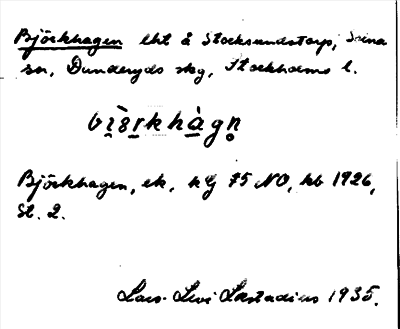 Björkhagen lht å Stocksundstorp, Solna
sn, Danderyds skg, Stockholms l.
Björkhagen, ek, kg 75 NO, kb 1926,
Bl. 2.
Lars-Levi Læstadius 1935.